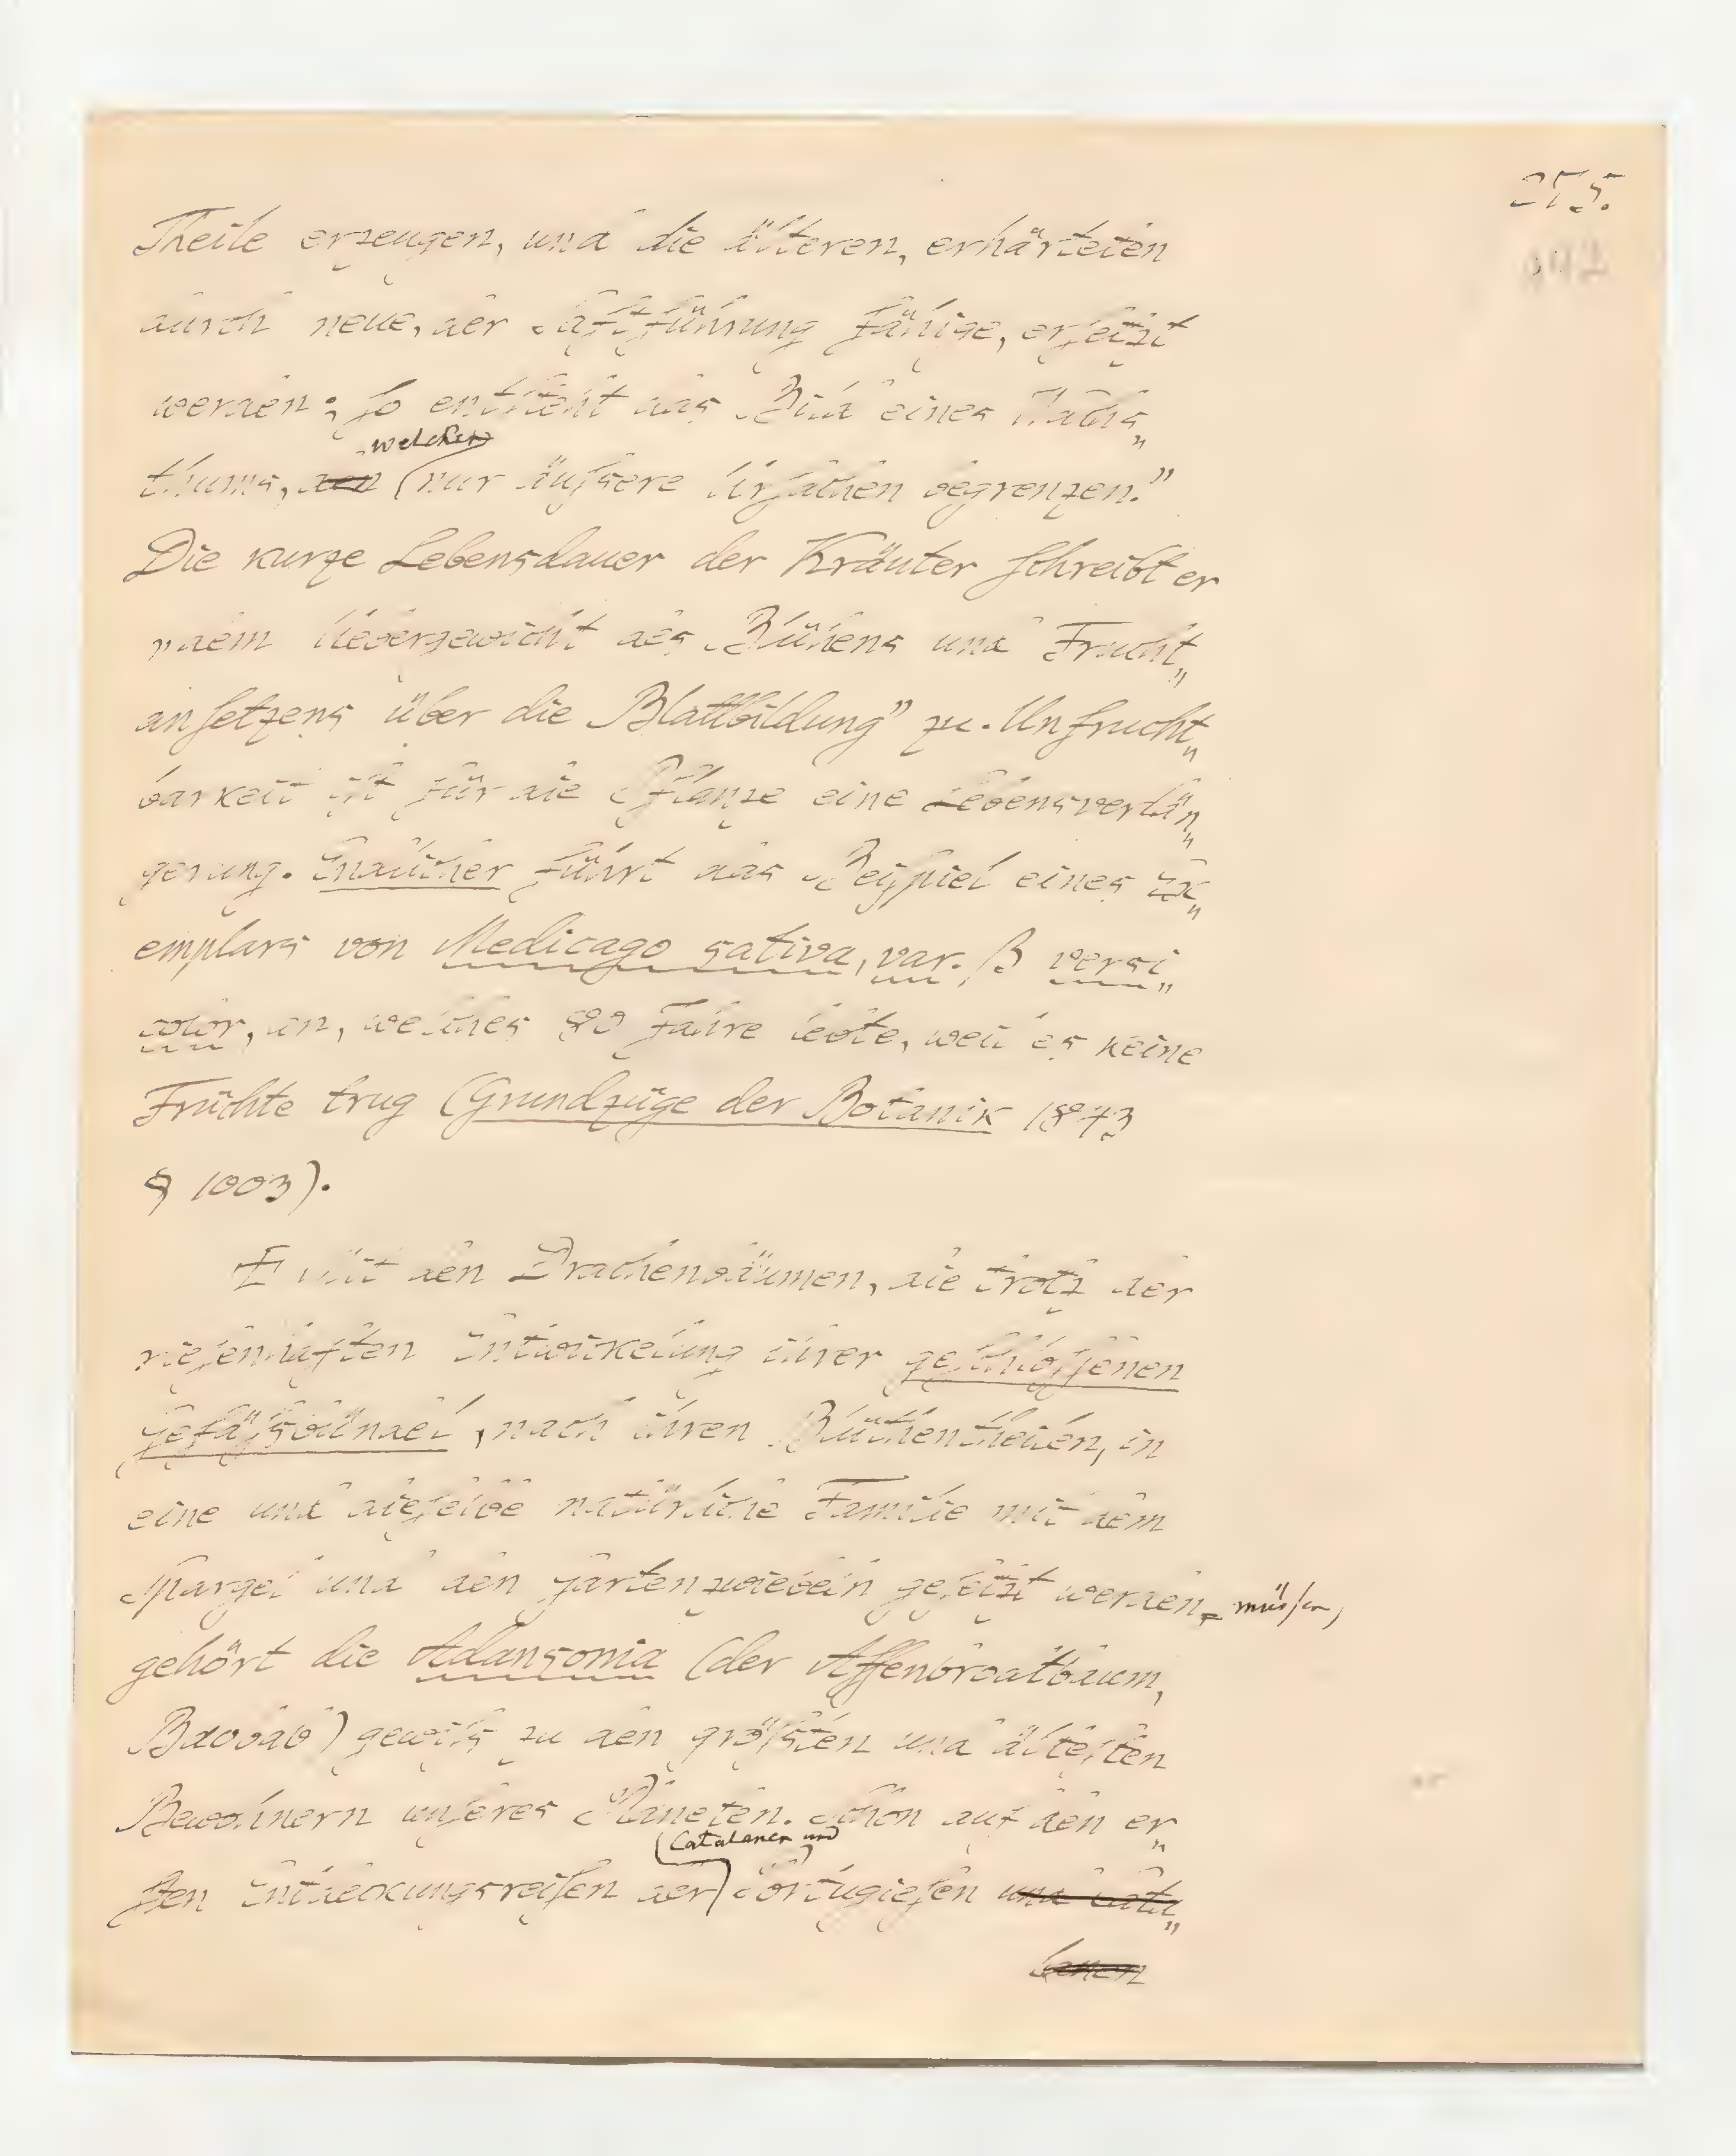 255.
Theile erzeugen, und die älteren, erhärteten
durch neue, der Saftführung fähige, ersetzt
werden; so entsteht das Bild eines Wachs„
welchen
thums, den nur äußere Ursachen begrenzen."
Die kurze Lebensdauer der Kräuter schreibt er
„dem Uebergewicht des Blühens und Frucht„
ansetzens über die Blattbildung" zu. Unfrucht„
barkeit ist für die Pflanze eine Lebensverlän„
gerung. Endlicher führt das Beispiel eines Ex„
emplars von Medicago sativa, var. β versi„
color, an, welches 80 Jahre lebte, weil es keine
Früchte trug (Grundzüge der Botanik 1843
§ 1003).
Mit den Drachenbäumen, die trotz der
riesenhaften Entwickelung ihrer geschlossenen
Gefäßbündel, nach ihren Blüthentheilen, in
eine und dieselbe natürliche Familie mit dem
Spargel und den Gartenzwiebeln gesetzt werden müssen,
gehört die Adansonia (der Affenbrodtbaum,
Baobab) gewiß zu den größten und ältesten
Bewohnern unseres Planeten. Schon auf den er„
Catalanen und
sten Entdeckungsreisen der Portugiesen und Cata„
lanen